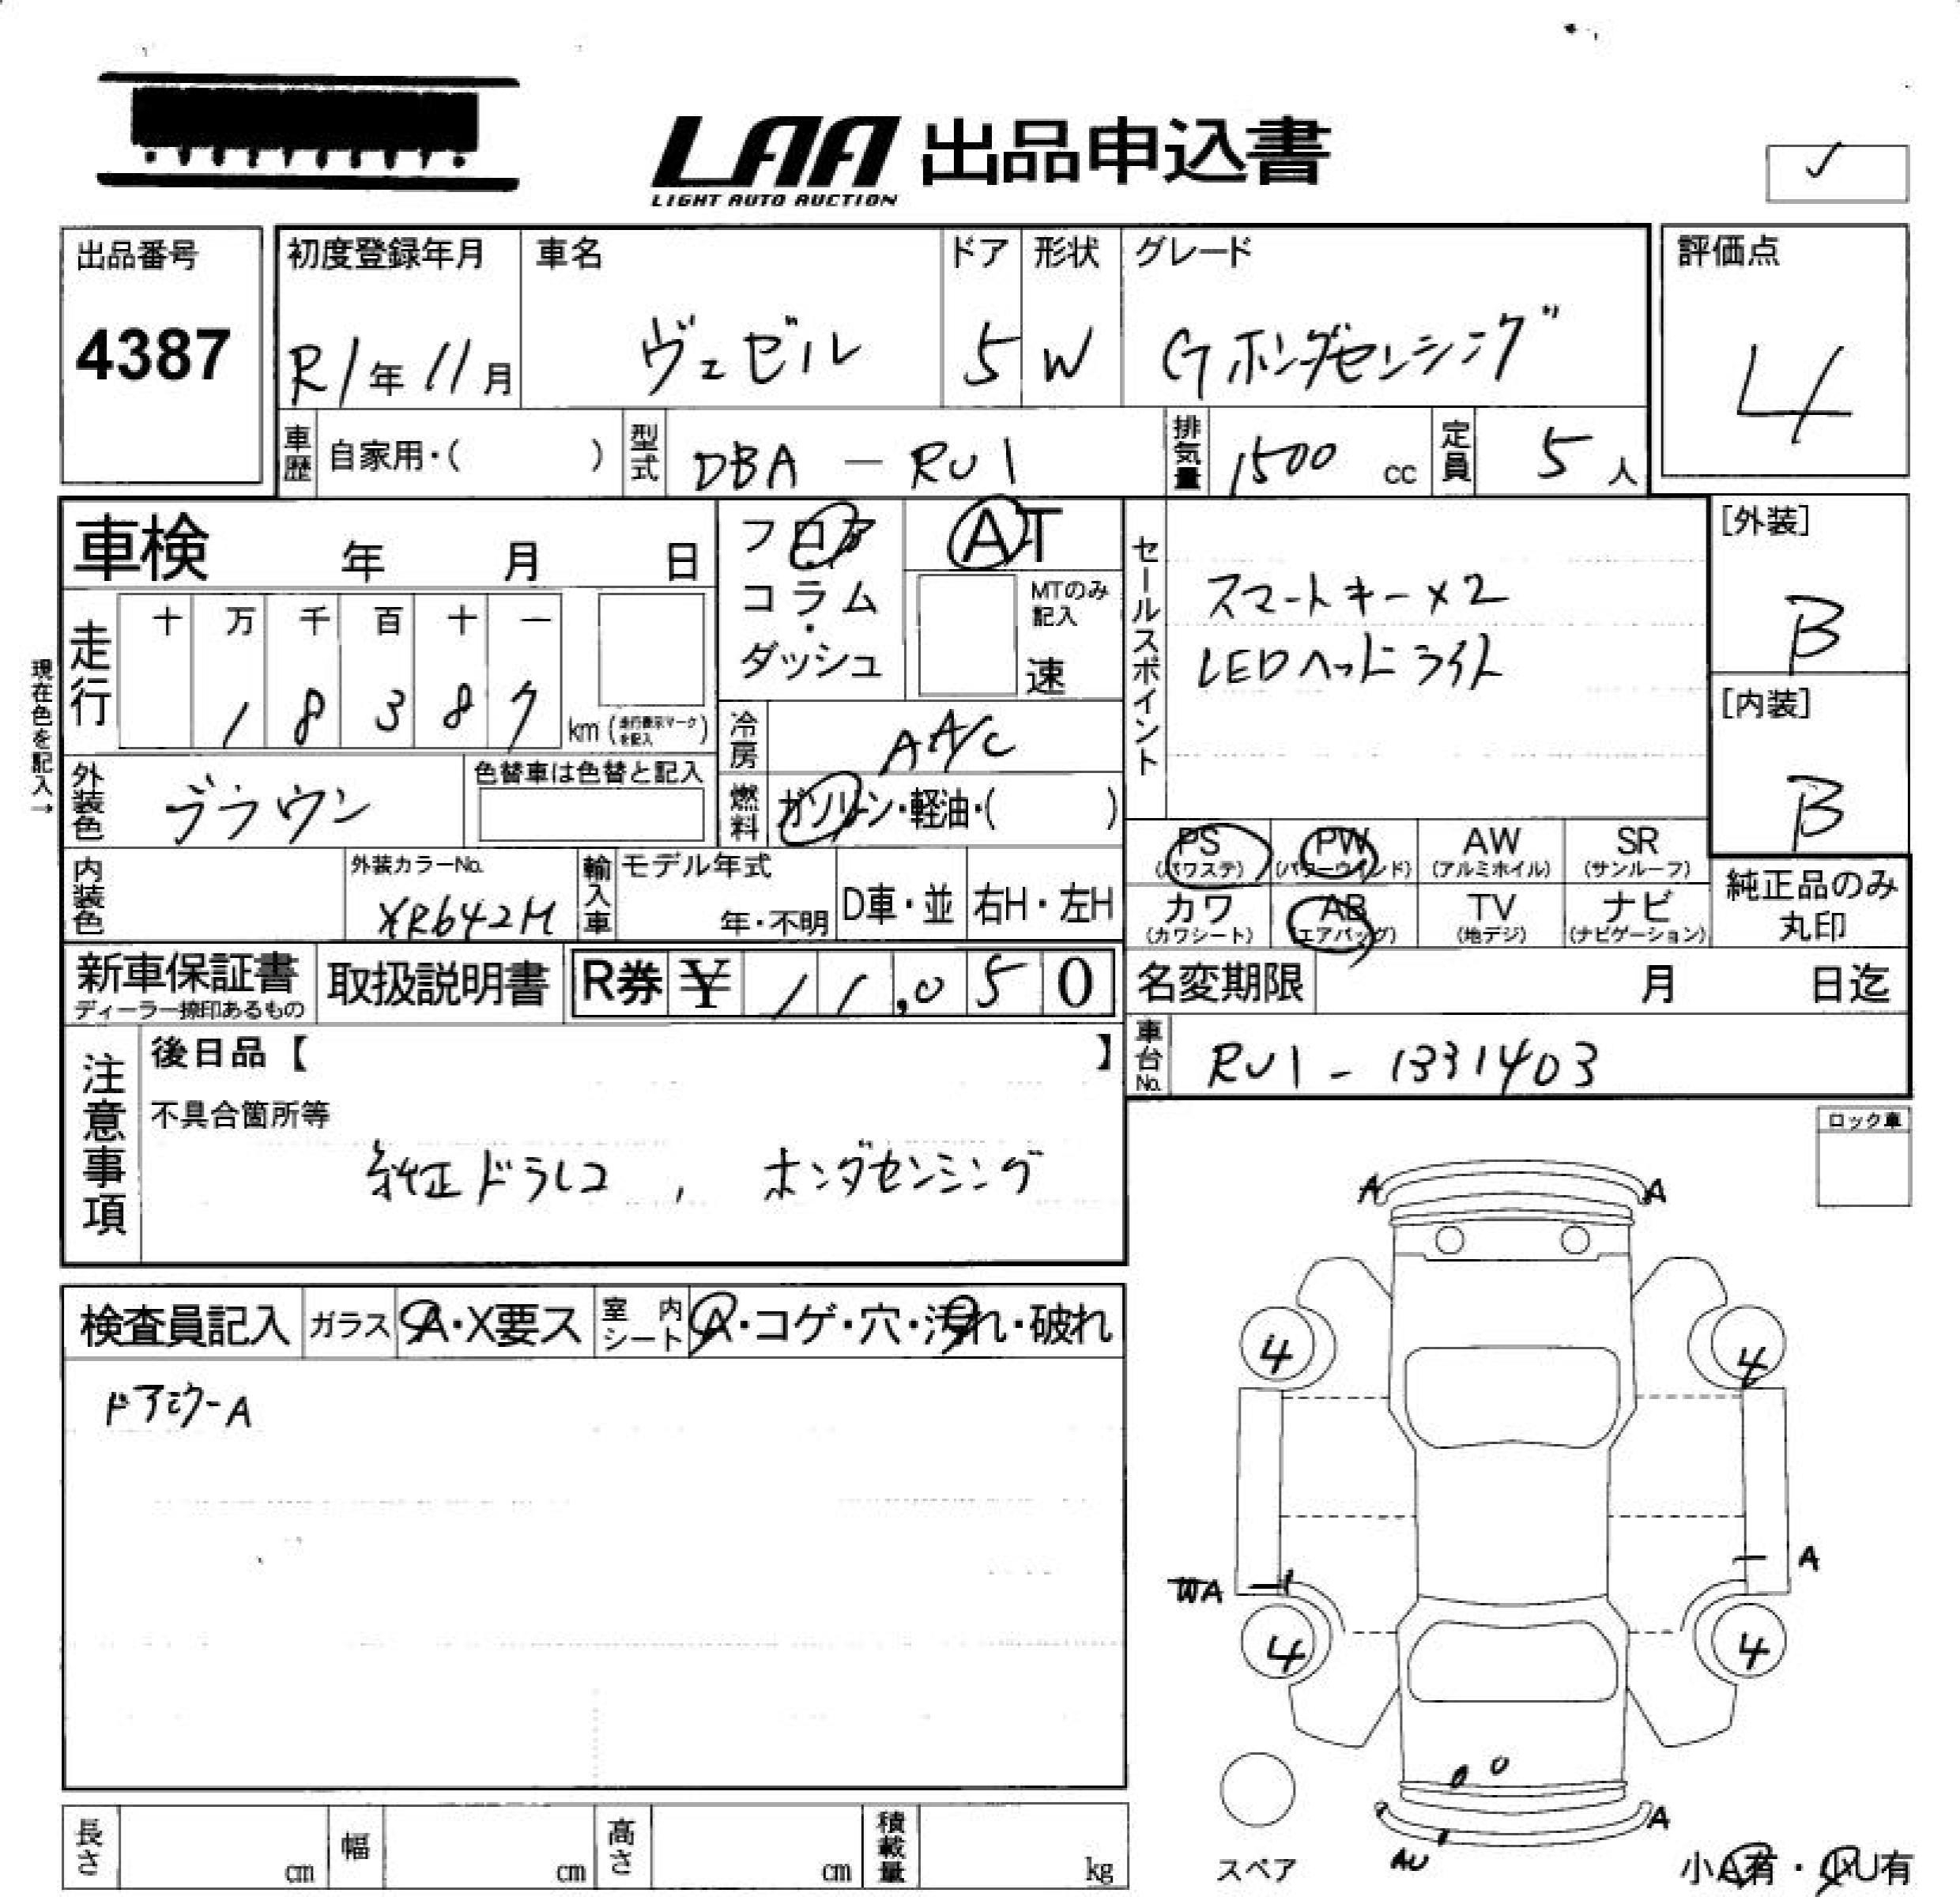 LAA 出品申込書
LIGHT AUTO AUCTION
✓
出品番号
4387
初度登録年月
R1年11月
車名
ヴェゼル
ドア
5
形状
W
グレード
Gホンダセンシング
評価点
4
車歴 自家用・( )
型式 DBA-RU1
排気量 1500cc
定員 5人
車検 年 月 日
フロア・コラム・ダッシュ
AT
MTのみ記入
速
セールスポイント
スマートキー×2
LEDヘッドライト
[外装]
B
[内装]
B
現在色を記入→
走行
十 万 千 百 十 一
1 8 3 8 7
km(走行表示マークを記入)
冷房 AA/C
燃料 ガソリン・軽油・( )
外装色 ブラウン
色替車は色替と記入
内装色
外装カラーNo.
YR642M
輸入車
モデル年式
年・不明
D車・並
右H・左H
PS(パワステ)
PW(パワーウインド)
AW(アルミホイル)
SR(サンルーフ)
カワ(カワシート)
AB(エアバッグ)
TV(地デジ)
ナビ(ナビゲーション)
純正品のみ丸印
新車保証書
ディーラー捺印あるもの
取扱説明書
R券 ¥ 11,050
名変期限 月 日迄
車台No. RU1-1331403
注意事項
後日品【 】
不具合箇所等
純正ドラレコ, ホンダセンシング
ロック車
検査員記入
ガラス A・X要ス
室内シート A・コゲ・穴・汚れ・破れ
ドアミラーA
A A
4 4
A
WA
4 4
A
AU
スペア
小A有・小U有
長さ cm
幅 cm
高さ cm
積載量 kg